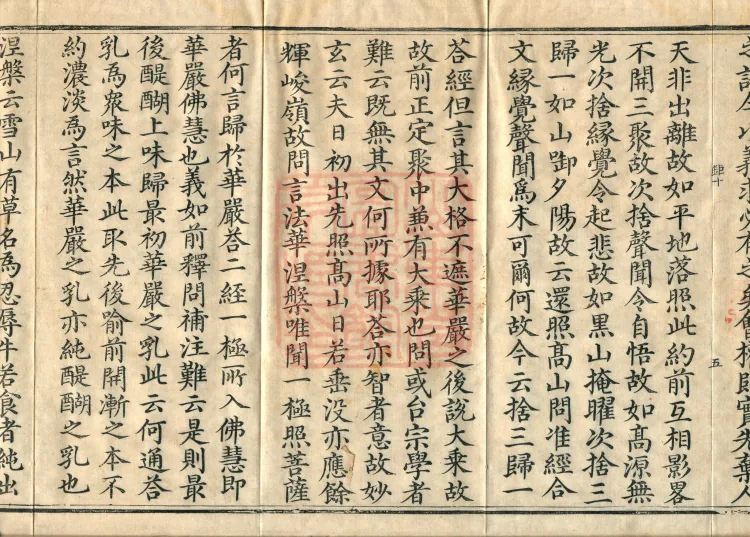 天非出離故如平地落照此約前互相影畧
不開三聚故次捨聲聞令自悟故如髙源無
光次捨緣覺令起悲故如黒山掩曜次捨三
歸一如山㘅夕陽故云還照髙山問准經合
文緣覺聲聞爲末可爾何故今云捨三歸一
荅經但言其大格不遮華嚴之後說大乘故
故前正定聚中兼有大乘也問或台宗學者
難云旣無其文何所據耶荅亦智者意故妙
玄云夫日初出先照髙山日若垂没亦應餘
輝峻嶺故問言法華涅槃唯聞一極照菩薩
者何言歸於華嚴荅二經一極所入佛慧即
華嚴佛慧也義如前釋問補注難云是則最
後醍醐上味歸最初華嚴之乳此云何通荅
乳爲衆味之本此取先後喻前開漸之本不
約濃淡爲言然華嚴之乳亦純醍醐之乳也
涅槃云雪山有草名爲忍辱牛若食者純出
五